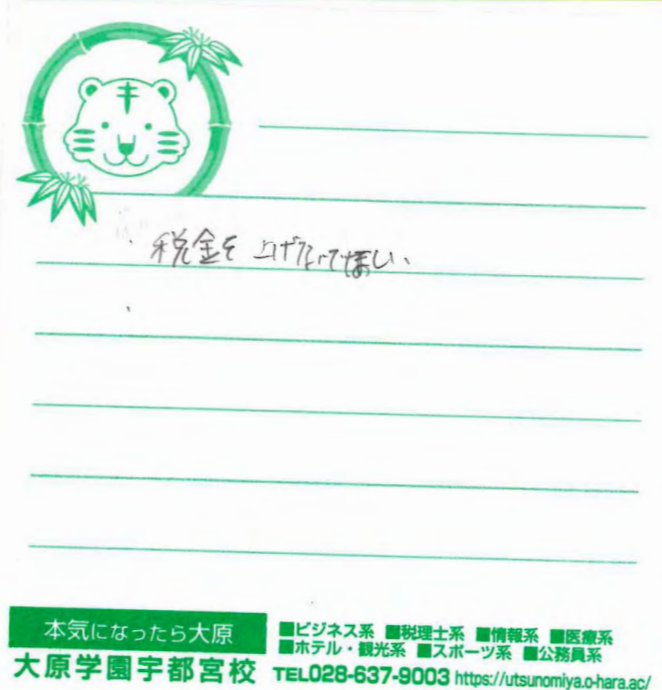 税金を上げないでほしい、
本気になったら大原
大原学園宇都宮校
■ビジネス系 ■税理士系 ■情報系 ■医療系
■ホテル・観光系 ■スポーツ系 ■公務員系
TEL028-637-9003 https://utsunomiya.o-hara.ac/